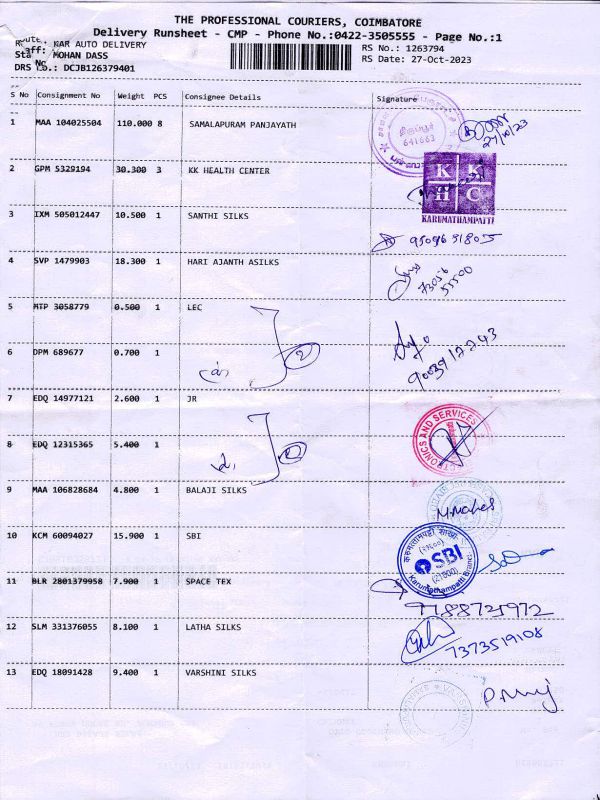 THE PROFESSIONAL COURIERS, COIMBATORE
Delivery Runsheet - CMP - Phone No.:0422-3505555 - Page No.:1
KAR AUTO DELIVERY RS No.: 1263794
MOHAN DASS RS Date: 27-Oct-2023
DRS No.: DCJB126379401
S No Consignment No Weight PCS Consignee Details Signature
1 MAA 104025504 110.000 8 SAMALAPURAM PANJAYATH
641663
27/10/23
2 GPM 5329194 30.300 3 KK HEALTH CENTER
K K
H C
KARUMATHAMPATTI
3 IXM 505012447 10.500 1 SANTHI SILKS
4 SVP 1479903 18.300 1 HARI AJANTH ASILKS
73056
55500
5 MTP 3058779 0.500 1 LEC
6 DPM 689677 0.700 1
2
7 EDQ 14977121 2.600 1 JR
8 EDQ 12315365 5.400 1
9 MAA 106828684 4.800 1 BALAJI SILKS
10 KCM 60094027 15.900 1 SBI
SBI
(21800)
Karumathampatti Branch
11 BLR 2801379958 7.900 1 SPACE TEX
12 SLM 331376055 8.100 1 LATHA SILKS
7373519108
13 EDQ 18091428 9.400 1 VARSHINI SILKS